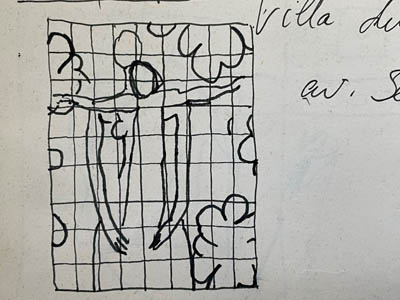 Villa du
av. Se